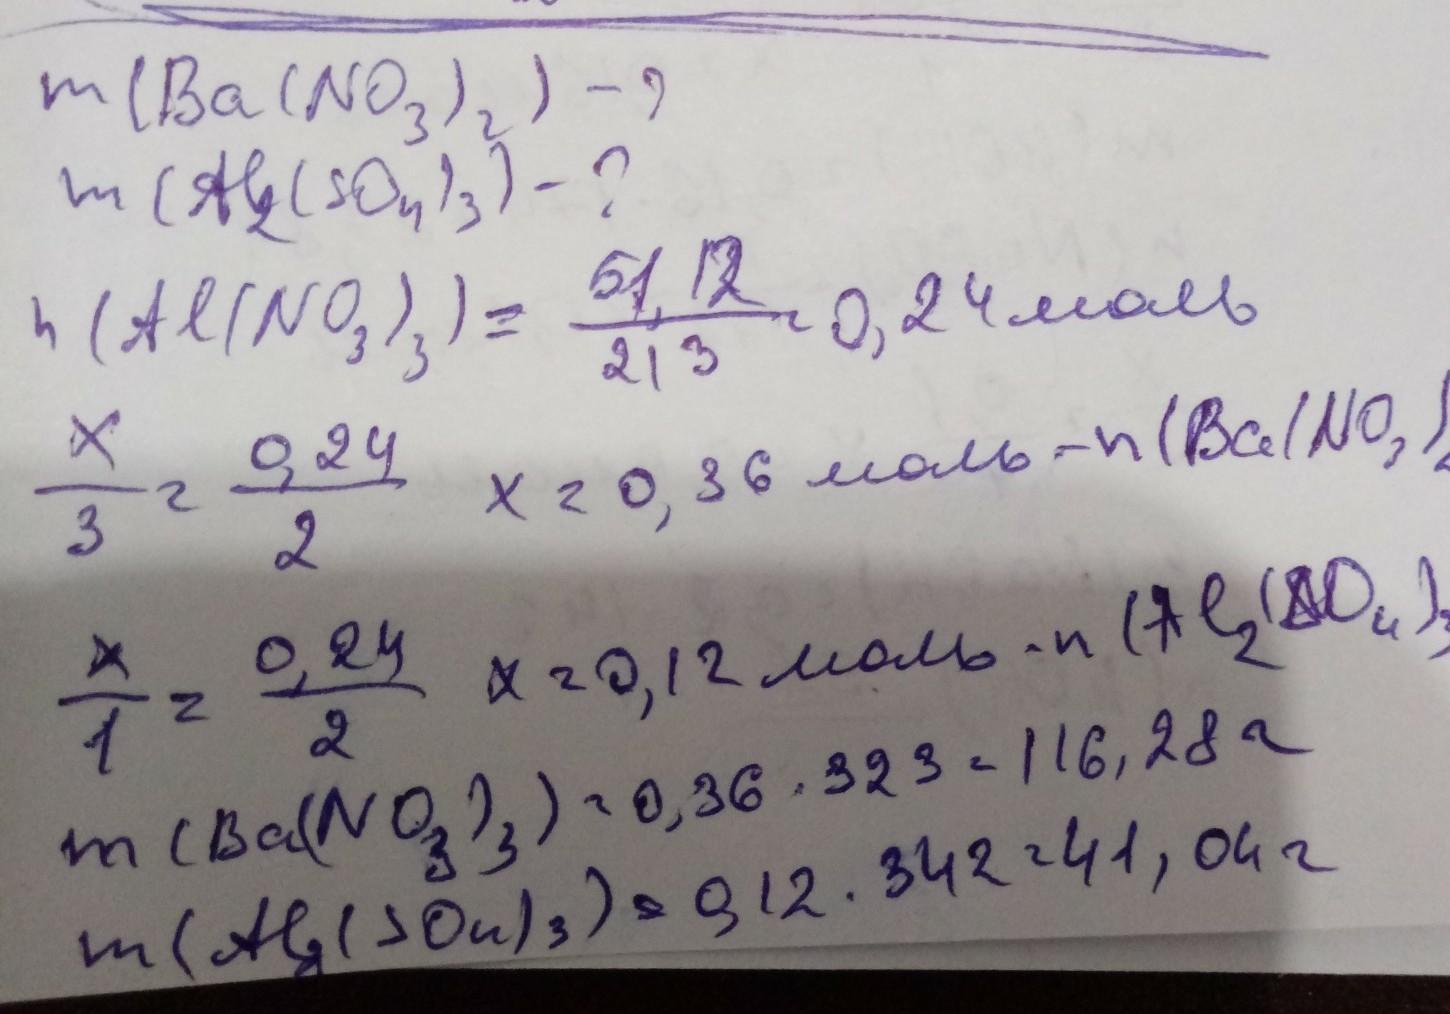 m(Ba(NO₃)₂) - ?
m(Al₂(SO₄)₃) - ?
n(Al(NO₃)₃) = 51,12/213 = 0,24 моль
x/3 = 0,24/2 x = 0,36 моль - n(Ba(NO₃)₂
x/1 = 0,24/2 x = 0,12 моль - n(Al₂(SO₄)₃
m(Ba(NO₃)₃) = 0,36 · 323 = 116,28 г
m(Al₂(SO₄)₃) = 0,12 · 342 = 41,04 г